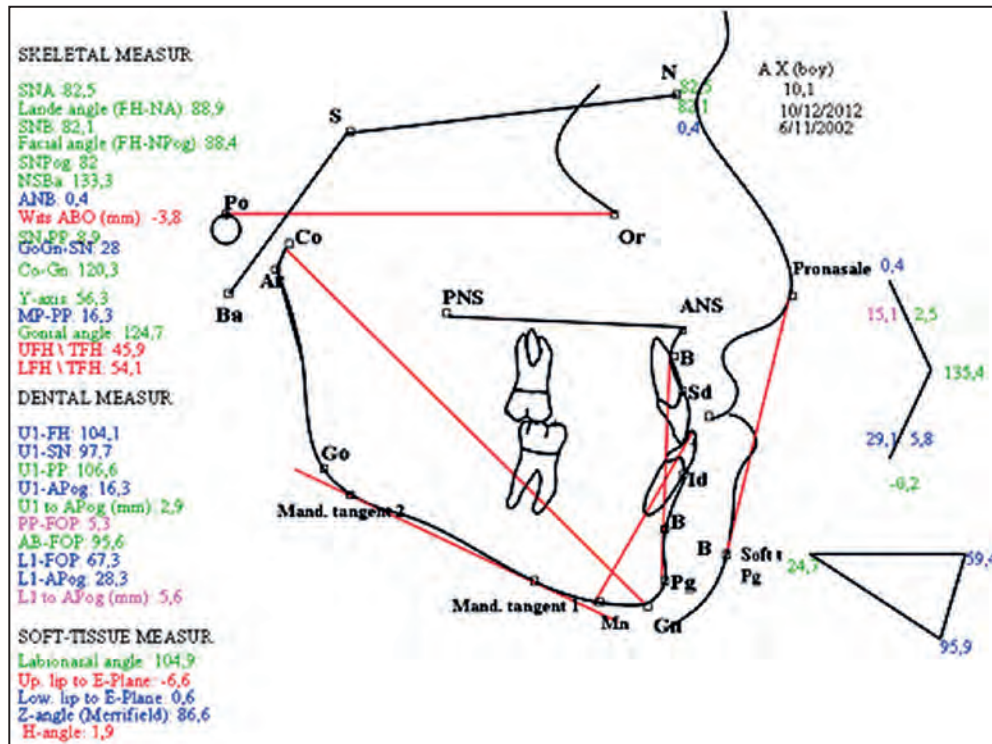 SKELETAL MEASUR
SNA: 82,5
Lande angle (FH-NA): 88,9
SNB: 82,1
Facial angle (FH-NPog): 88,4
SNPog: 82
NSBa: 133,3
ANB: 0,4
Wits ABO (mm): -3,8
SN-PP: 8,9
GoGn-SN: 28
Co-Gn: 120,3
Y-axis: 56,3
MP-PP: 16,3
Gonial angle: 124,7
UFH \ TFH: 45,9
LFH \ TFH: 54,1
DENTAL MEASUR
U1-FH: 104,1
U1-SN: 97,7
U1-PP: 106,6
U1-APog: 16,3
U1 to APog (mm): 2,9
PP-FOP: 5,3
AB-FOP: 95,6
L1-FOP: 67,3
L1-APog: 28,3
L1 to APog (mm): 5,6
SOFT-TISSUE MEASUR
Labionasal angle: 104,9
Up. lip to E-Plane: -6,6
Low. lip to E-Plane: 0,6
Z-angle (Merrifield): 86,6
H-angle: 1,9
A X (boy)
10,1
10/12/2012
6/11/2002
N
82,5
82,1
0,4
S
Po
Or
Co
Ar
Ba
PNS
ANS
Pronasale
B
Sd
Id
Go
Mand. tangent 2
B
B
Soft t
Pg
Pg
Mand. tangent 1
Mn
Gn
0,4
15,1
2,5
135,4
29,1
5,8
-0,2
24,7
59,4
95,9